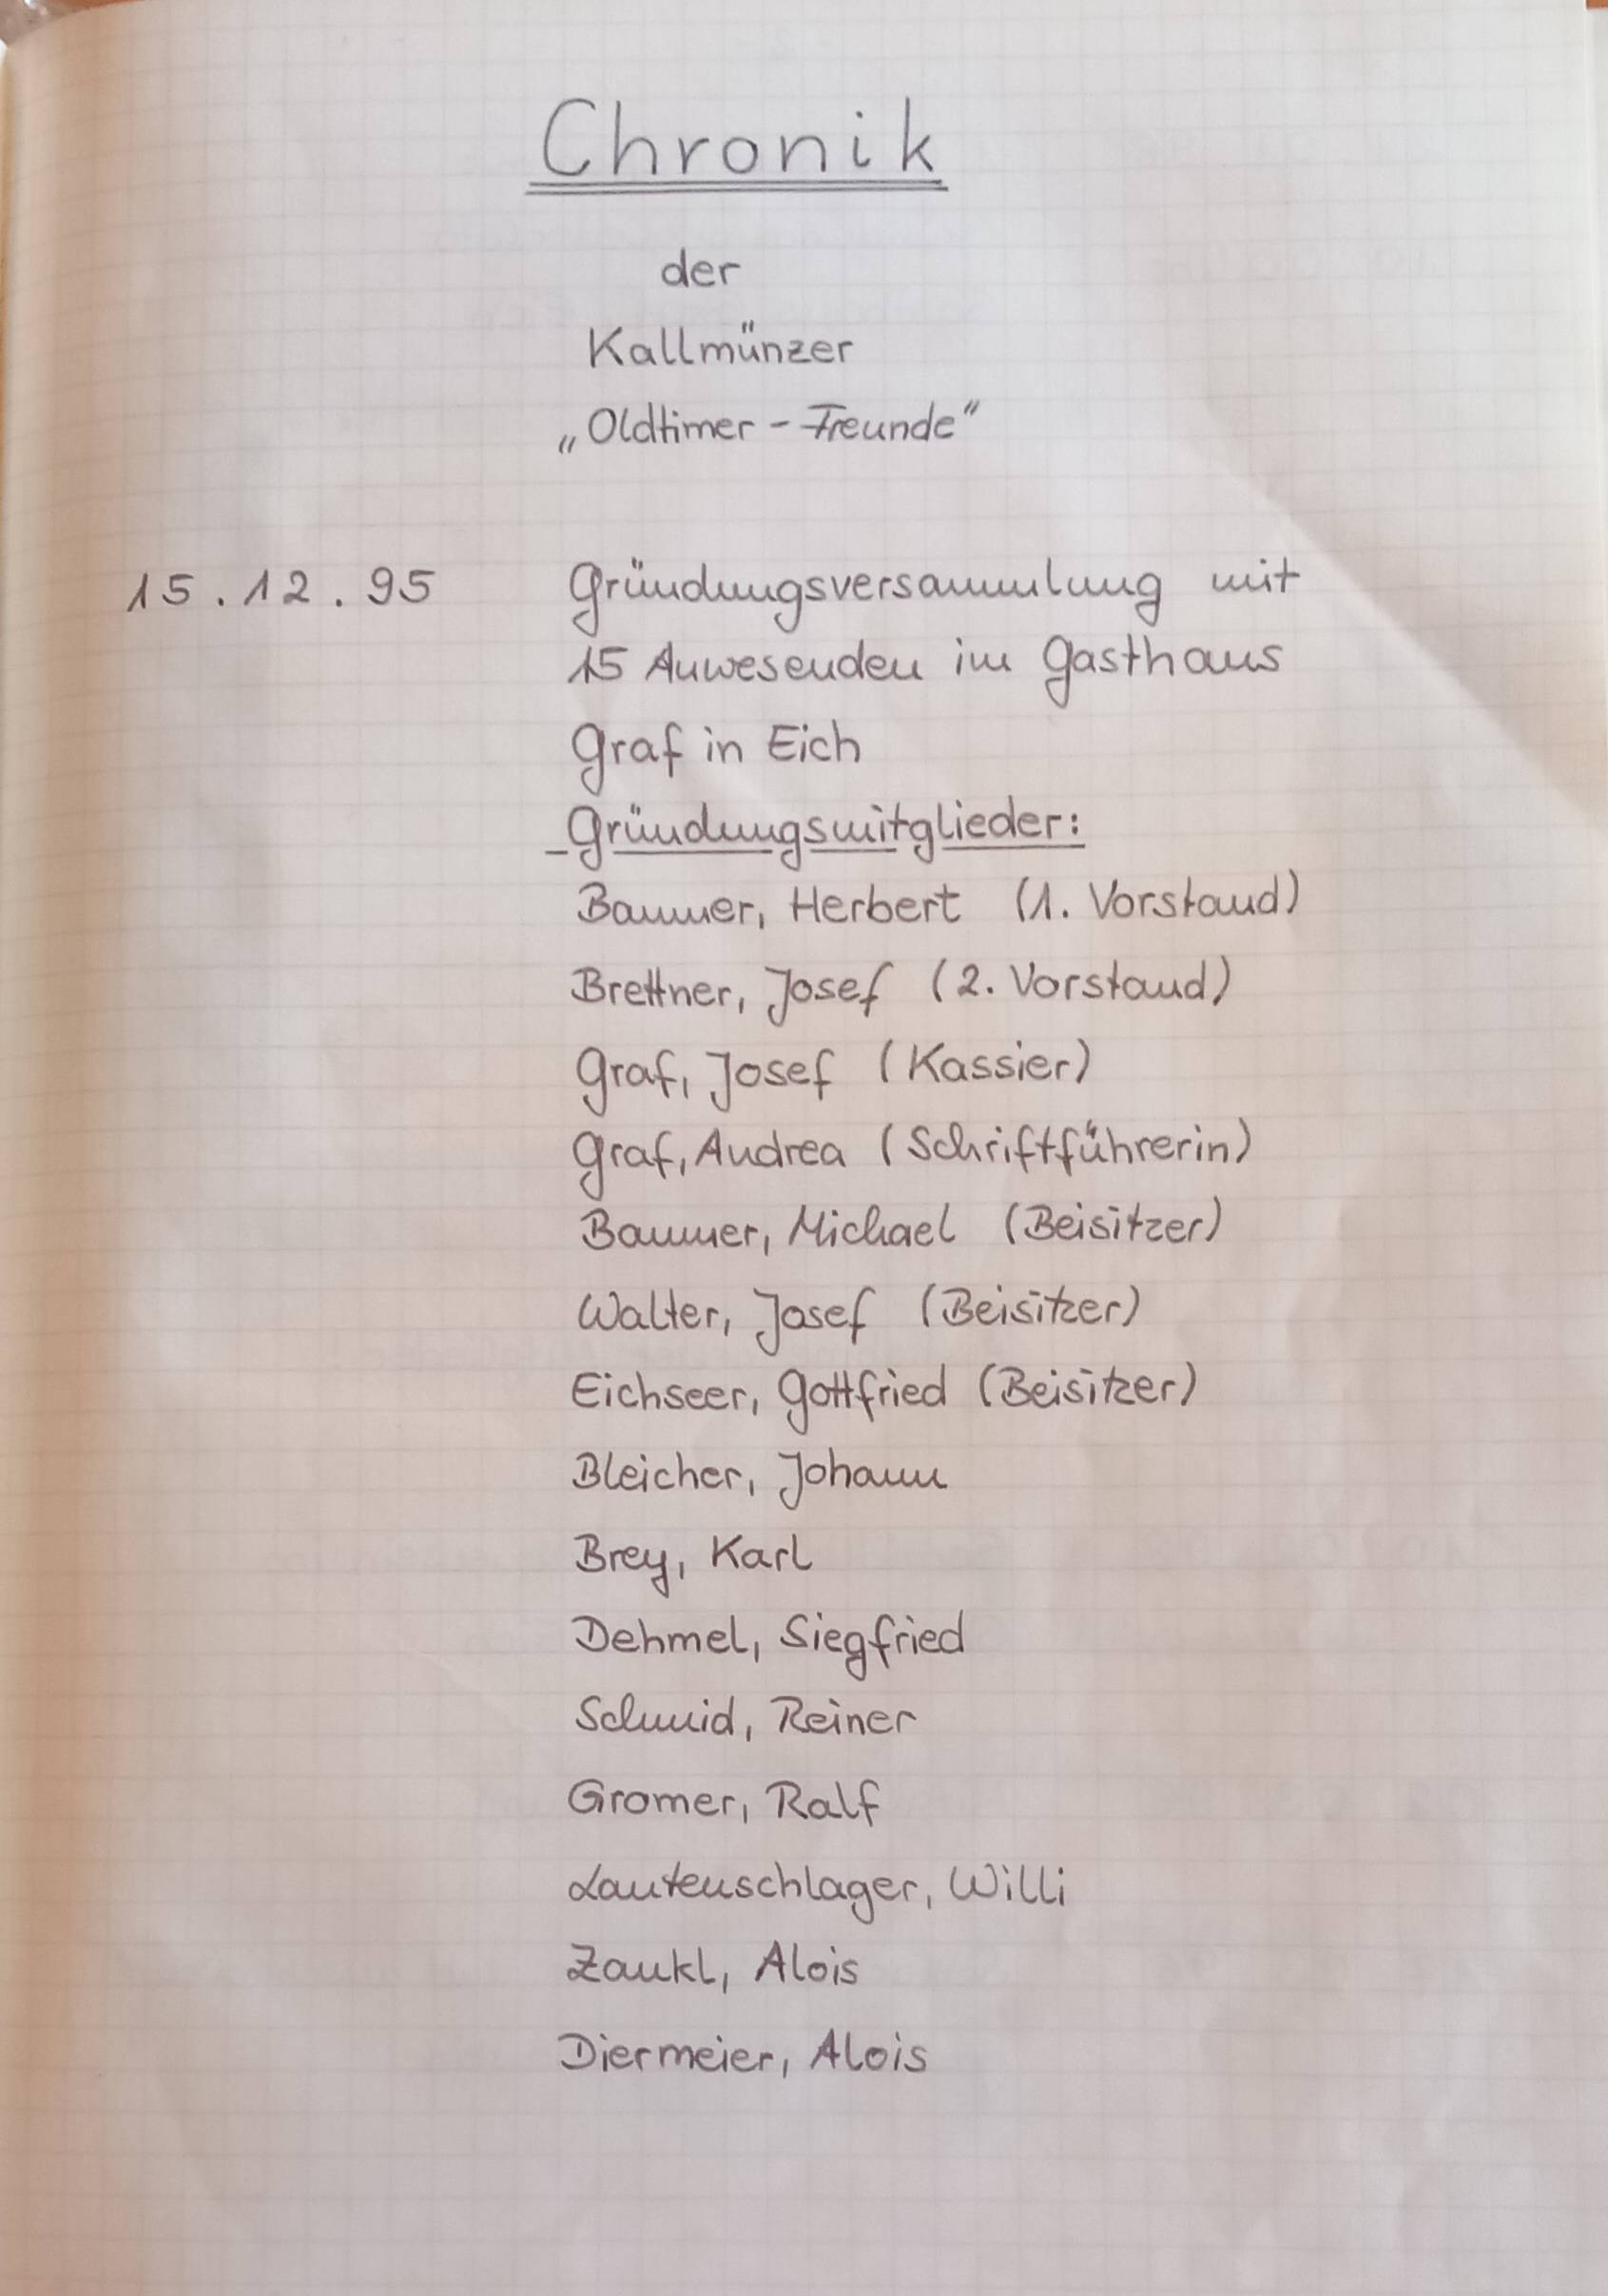 Chronik
der
Kallmünzer
„Oldtimer - Freunde“
15.12.95 Gründungsversammlung mit
15 Anwesenden im Gasthaus
Graf in Eich
Gründungsmitglieder:
Bammer, Herbert (1. Vorstand)
Brettner, Josef (2. Vorstand)
Graf, Josef (Kassier)
Graf, Andrea (Schriftführerin)
Bammer, Michael (Beisitzer)
Walter, Josef (Beisitzer)
Eichseer, Gottfried (Beisitzer)
Bleicher, Johann
Brey, Karl
Dehmel, Siegfried
Schmid, Reiner
Gromer, Ralf
Lautenschlager, Willi
Zankl, Alois
Diermeier, Alois